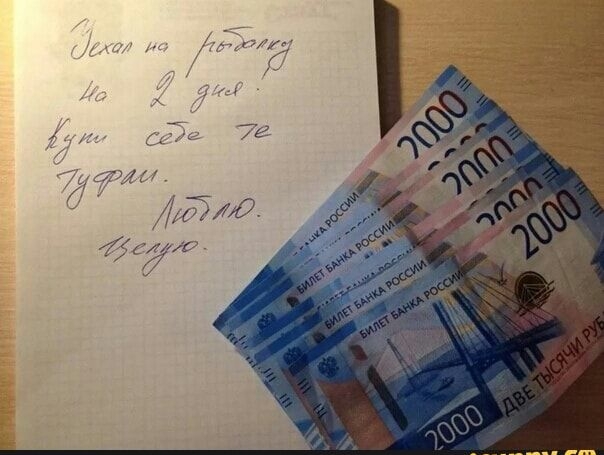 Уехал на рыбалку
на 2 дня!
Купи себе те
туфли.
Люблю.
Целую.
2000
2000
2000
2000
БАНКА РОССИИ
БИЛЕТ БАНКА РОССИИ
БИЛЕТ БАНКА РОССИИ
БИЛЕТ БАНКА РОССИИ
2000
ДВЕ ТЫСЯЧИ РУБ